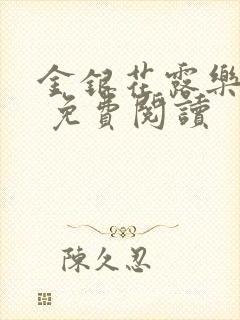 金銀花露樂
免費閱讀
陳久忍